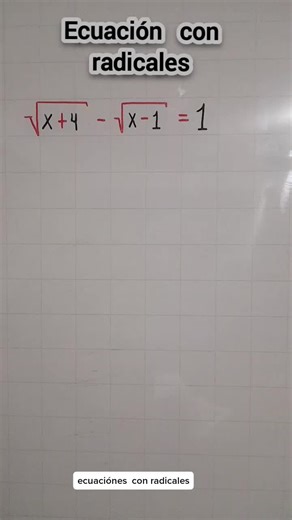 Ecuación con
radicales
√x+4 - √x-1 = 1
ecuaciónes con radicales